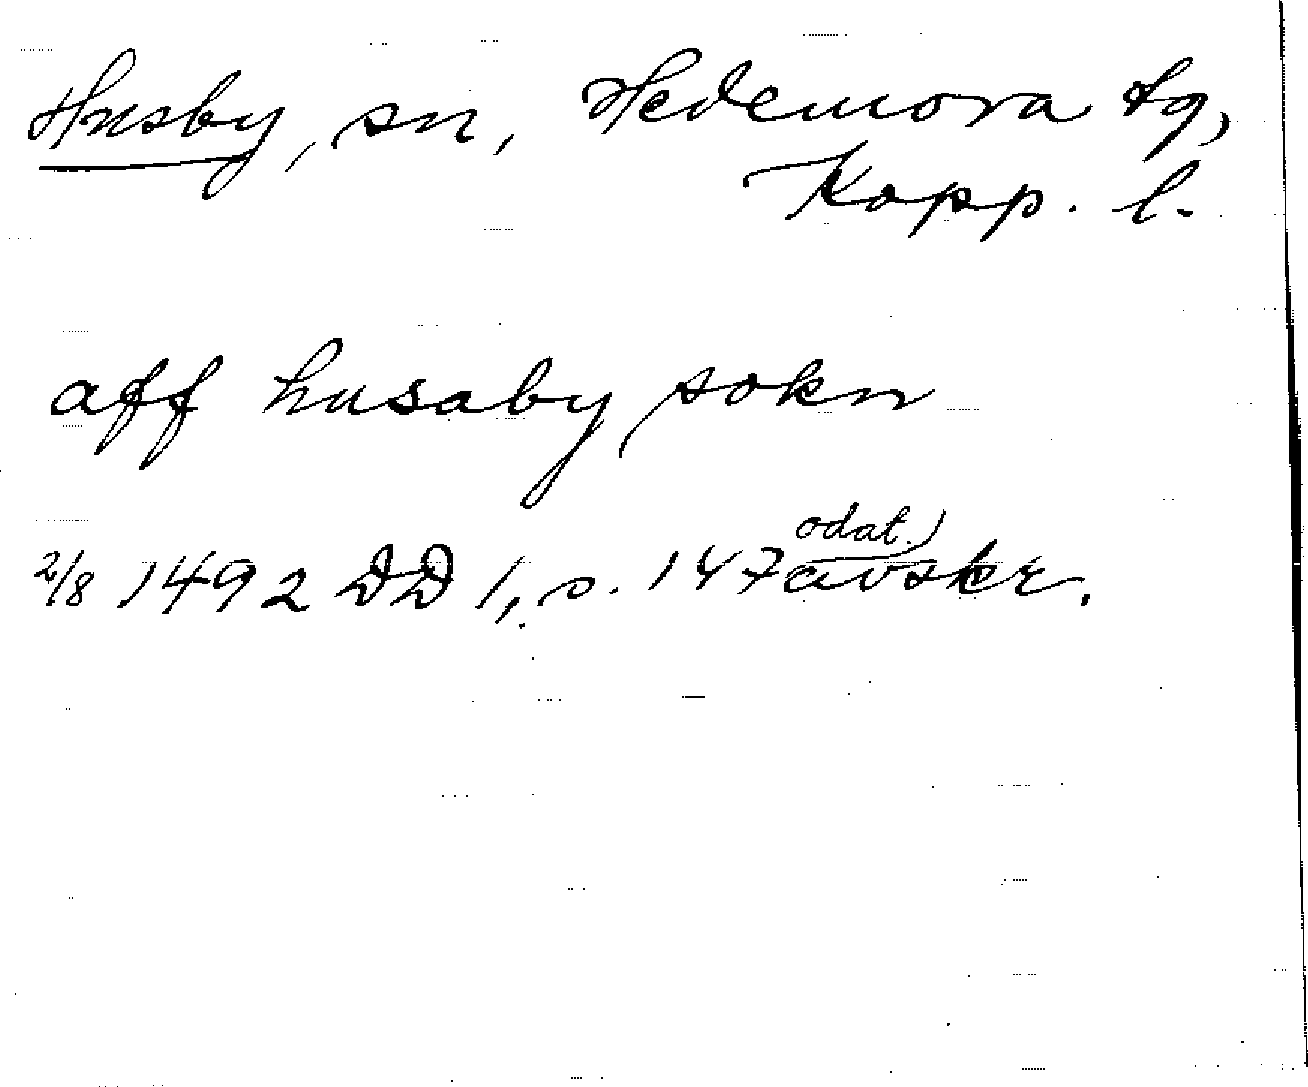 Husby, sn, Hedemora tg,
Kopp. l.
aff husaby sokn
odat.)
2/8 1492 DD 1, s. 147 avskr.